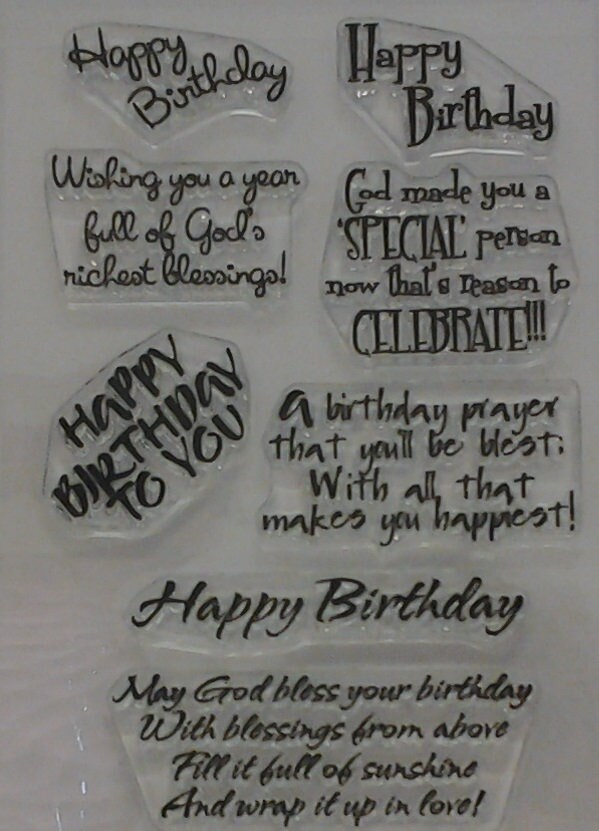 Happy
Birthday
Happy
Birthday
Wishing you a year
full of God's
richest blessings!
God made you a
'SPECIAL' person
now that's reason to
CELEBRATE!!!
HAPPY
BIRTHDAY
TO YOU
A birthday prayer
that you'll be blest:
With all that
makes you happiest!
Happy Birthday
May God bless your birthday
With blessings from above
Fill it full of sunshine
And wrap it up in love!